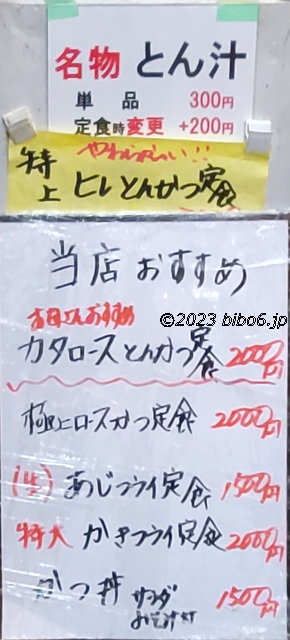 名物 とん汁
単品 300円
定食時変更 +200円
やわらかい!!
特上 ヒレとんかつ定食
当店おすすめ
おすすめ
©2023 bibo6.jp
カタロースとんかつ定食 2000円
極上ロースかつ定食 2000円
あじフライ定食 1500円
特大 かきフライ定食 2000円
かつ丼 サラダ 1500円
みそ汁付